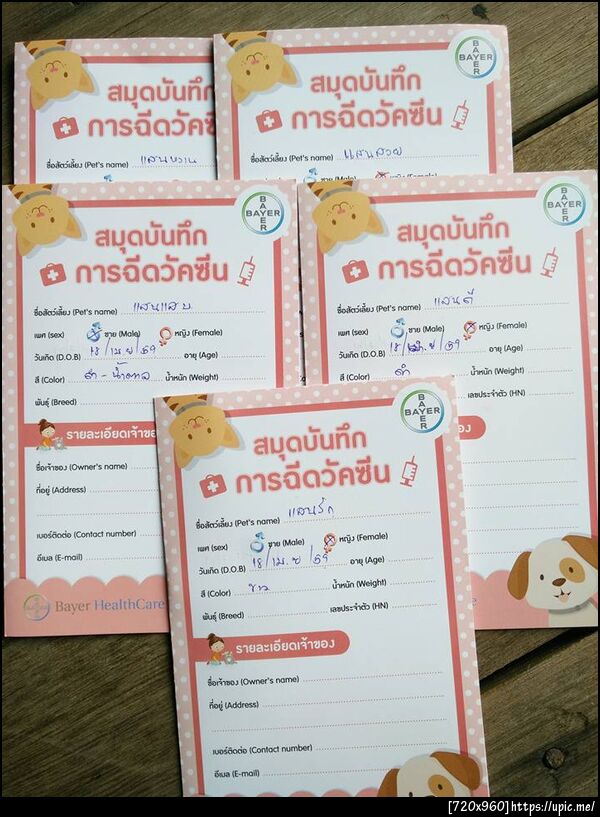 สมุดบันทึก
การฉีดวัคซีน
ชื่อสัตว์เลี้ยง (Pet's name) แสนหวาน
BAYER
BAYER
สมุดบันทึก
การฉีดวัคซีน
ชื่อสัตว์เลี้ยง (Pet's name) แสนสวย
ชาย (Male) หญิง (Female)
BAYER
BAYER
สมุดบันทึก
การฉีดวัคซีน
ชื่อสัตว์เลี้ยง (Pet's name) แสนแสบ
เพศ (sex) ชาย (Male) หญิง (Female)
วันเกิด (D.O.B) 18/เม.ย/59 อายุ (Age)
สี (Color) ดำ-น้ำตาล น้ำหนัก (Weight)
พันธุ์ (Breed)
รายละเอียดเจ้าของ
ชื่อเจ้าของ (Owner's name)
ที่อยู่ (Address)
เบอร์ติดต่อ (Contact number)
อีเมล (E-mail)
BAYER
Bayer HealthCare
BAYER
BAYER
สมุดบันทึก
การฉีดวัคซีน
ชื่อสัตว์เลี้ยง (Pet's name) แสนดี
เพศ (sex) ชาย (Male) หญิง (Female)
วันเกิด (D.O.B) 18/เม.ย/59 อายุ (Age)
สี (Color) ดำ น้ำหนัก (Weight)
เลขประจำตัว (HN)
BAYER
BAYER
สมุดบันทึก
การฉีดวัคซีน
ชื่อสัตว์เลี้ยง (Pet's name) แสนรัก
เพศ (sex) ชาย (Male) หญิง (Female)
วันเกิด (D.O.B) 18/เม.ย/59 อายุ (Age)
สี (Color) ขาว น้ำหนัก (Weight)
พันธุ์ (Breed) เลขประจำตัว (HN)
รายละเอียดเจ้าของ
ชื่อเจ้าของ (Owner's name)
ที่อยู่ (Address)
เบอร์ติดต่อ (Contact number)
อีเมล (E-mail)
[720x960]https://upic.me/